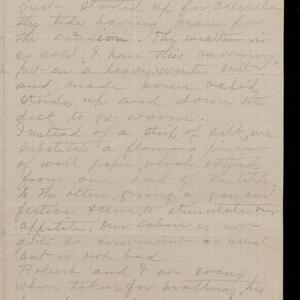 started up for Calcutta
the tide having risen for
the occasion. The weather is
so cold, I have this morning
put on a heavy winter suit
and made some rapid
strides up and down the
deck to get warm.
Instead of a strip of silk, we
substitute a flaming piece
of wall paper, which extends
from one end of the table
to the other, giving a gay and
festive scene, to stimulate our
appetite. Our cabin is not
quite so convenient as usual
but is not bad.
Robert and I are every
where taken for brothers, his